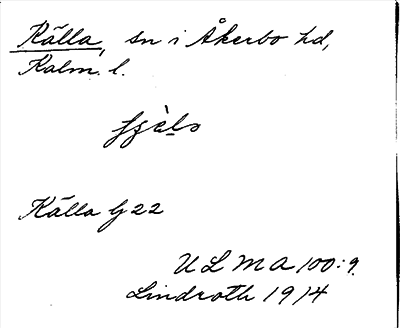 Källa, sn i Åkerbo hd,
Kalm. l.
Källa G 22
U L M A 100:9.
Lindroth 1914